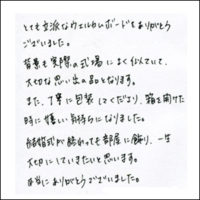 とても立派なウェルカムボードをありがとう
ございました。
背景も実際の式場によく似ていて、
大切な思い出の品となります。
また、丁寧に包装してくださり、箱を開けた
時に嬉しい気持ちになりました。
結婚式が終わっても部屋に飾り、一生
大切にしていきたいと思います。
本当にありがとうございました。